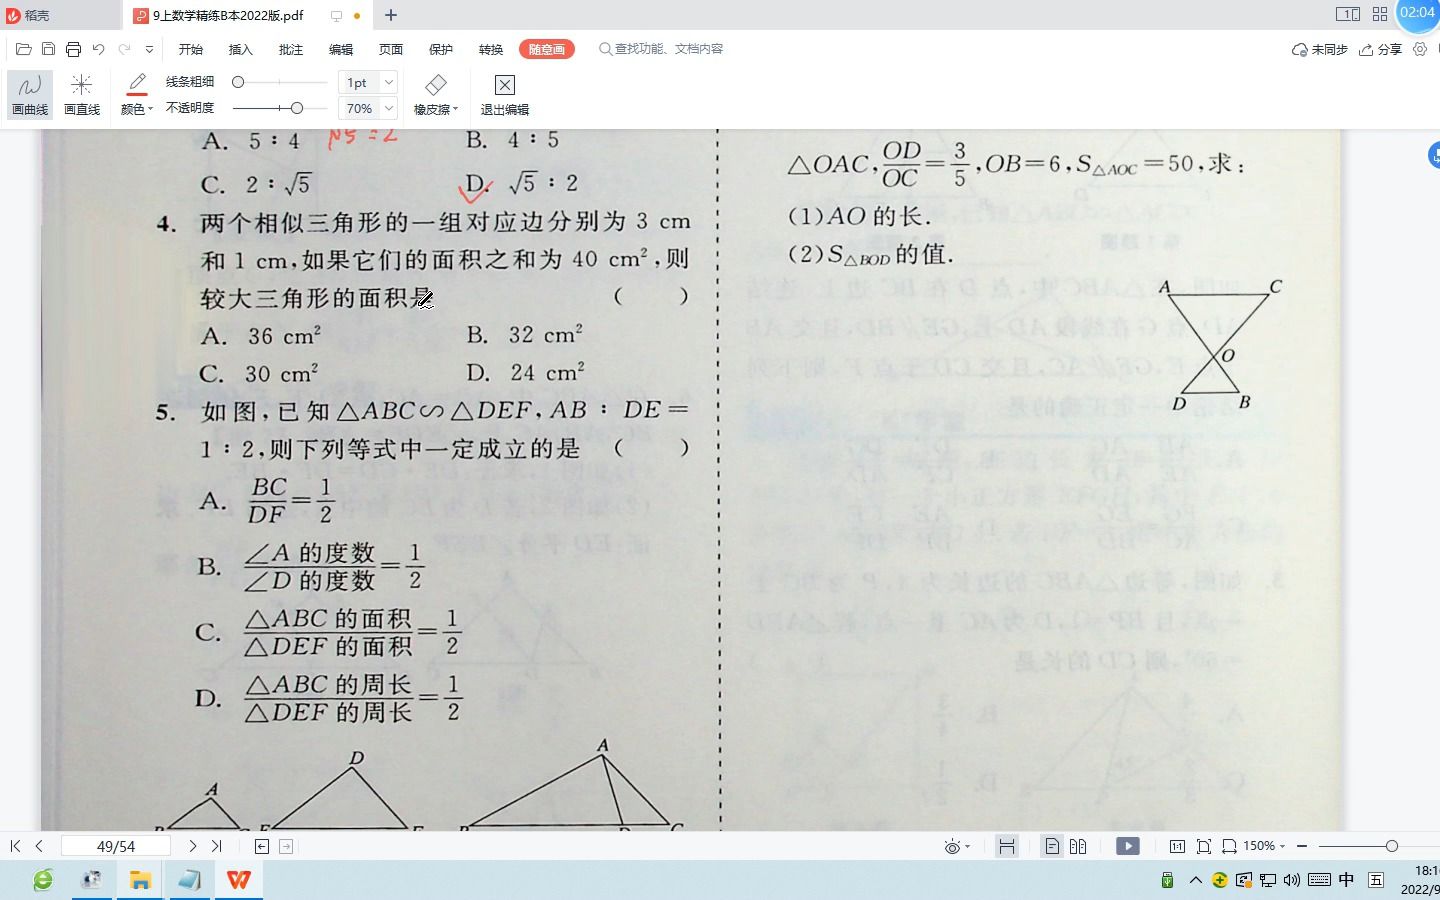 稻壳
9上数学精练B本2022版.pdf
02:04
开始 插入 批注 编辑 页面 保护 转换 随意画 查找功能、文档内容
未同步 分享
画曲线 画直线 颜色 线条粗细 1pt 不透明度 70% 橡皮擦 退出编辑
A. 5∶4
B. 4∶5
C. 2∶√5
D. √5∶2
4. 两个相似三角形的一组对应边分别为 3 cm
和 1 cm,如果它们的面积之和为 40 cm²,则
较大三角形的面积是 ( )
A. 36 cm²
B. 32 cm²
C. 30 cm²
D. 24 cm²
5. 如图,已知△ABC∽△DEF,AB∶DE=
1∶2,则下列等式中一定成立的是 ( )
A. BC/DF=1/2
B. ∠A 的度数/∠D 的度数=1/2
C. △ABC 的面积/△DEF 的面积=1/2
D. △ABC 的周长/△DEF 的周长=1/2
A
D
A
△OAC,OD/OC=3/5,OB=6,S△AOC=50,求:
(1)AO 的长.
(2)S△BOD的值.
A C
O
D B
49/54
150%
中
五
18:1
2022/9